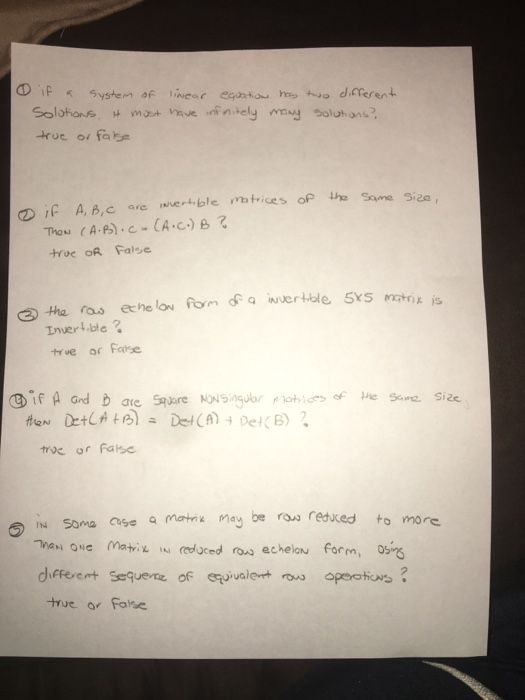 ① if a system of linear equation has two different
Solutions it must have infinitely many solutions?
true or false
② if A, B, C are invertible matrices of the same size,
Then (A·B)·C = (A·C·) B ?
true or False
③ the row echelon form of a invertible 5x5 matrix is
Invertible ?
true or false
④ if A and B are Square Nonsingular matrices of the same size
then Det(A+B) = Det(A) + Det(B) ?
true or false
⑤ in some case a matrix may be row reduced to more
Than one matrix in reduced row echelon form, using
different sequence of equivalent row operations ?
true or false